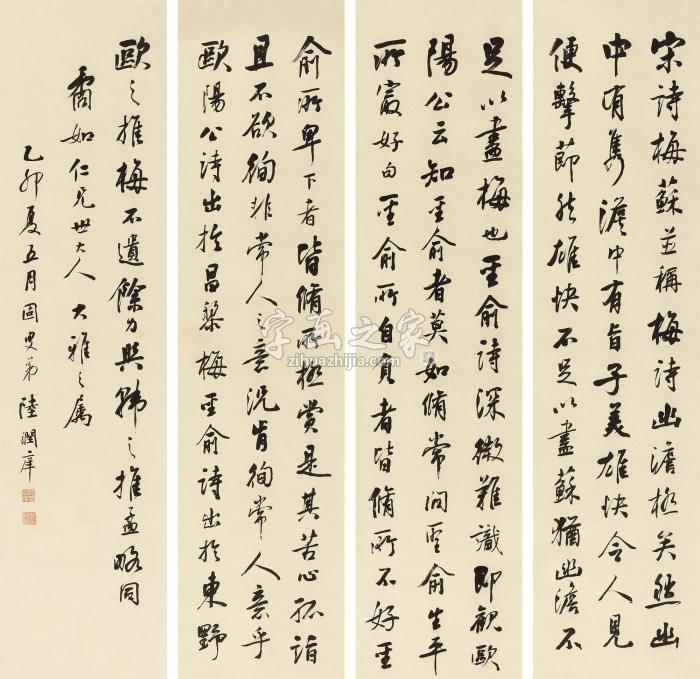 宋詩梅蘇並稱梅詩幽澹極矣然幽
中有雋澹中有旨子美雄快令人見
便擊節然雄快不足以盡蘇猶幽澹不
足以盡梅也聖俞詩深微難識即觀歐
陽公云知聖俞者莫如脩常問聖俞生平
所最好句聖俞所自負者皆脩所不好聖
俞所卑下者皆脩所極賞是其苦心孤詣
且不欲徇非常人之意況肯徇常人意乎
歐陽公詩出於昌黎梅聖俞詩出於東野
歐之推梅不遺餘力與韓之推孟略同
如仁兄世大人大雅之属
乙卯夏五月固叟弟陸潤庠
字画之家
zihuazhijia.com